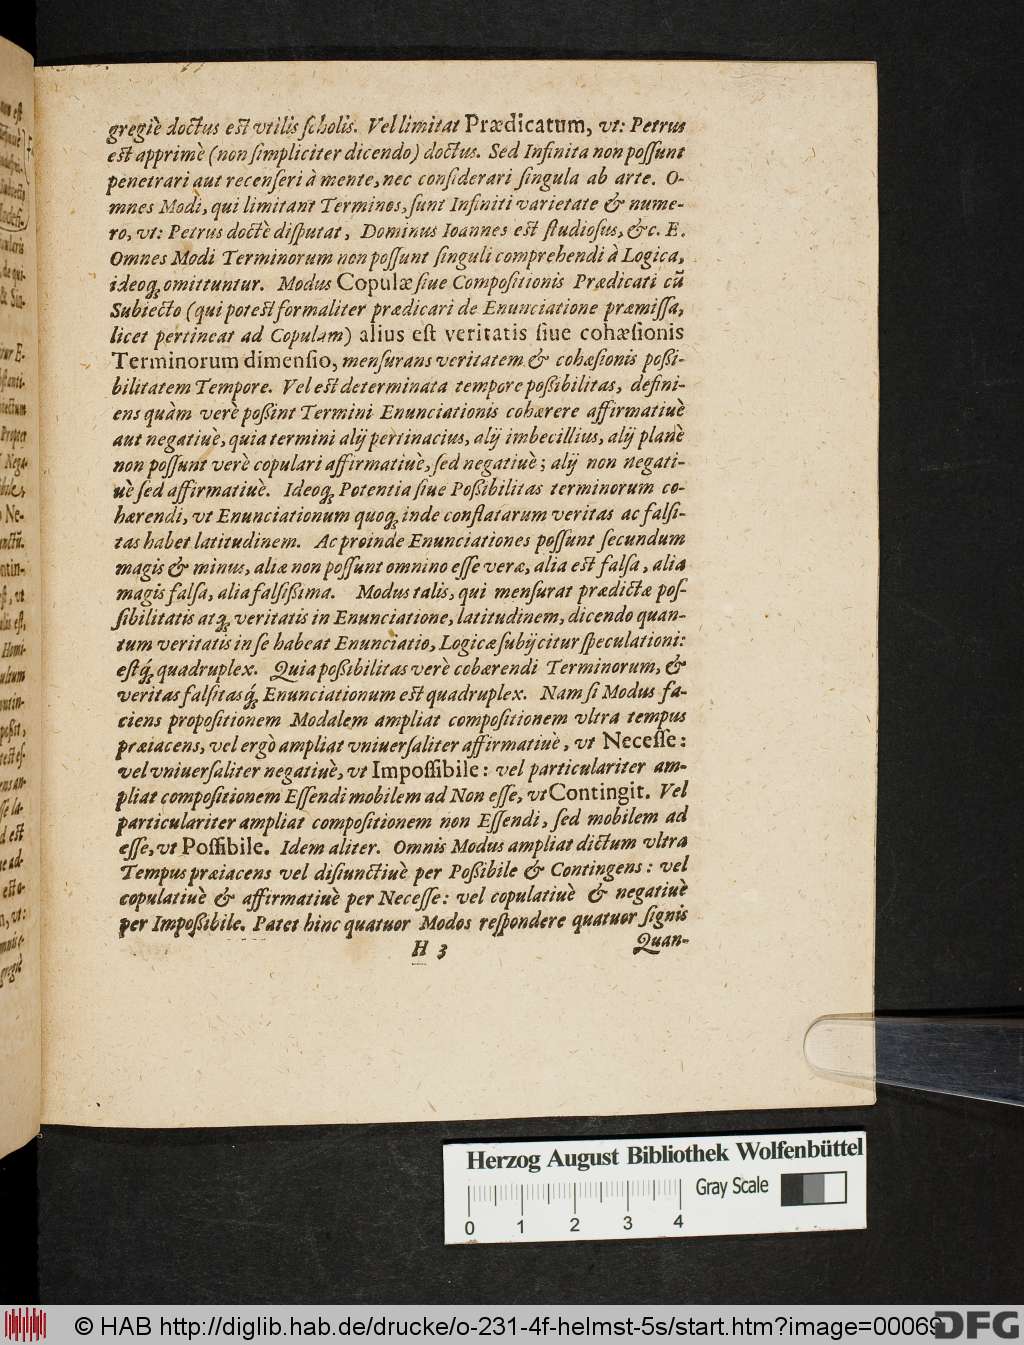 gregiè doctus est vtilis ſcholis. Vel limitat Prædicatum, vt: Petrus
est apprimè (non ſimpliciter dicendo) doctus. Sed Infinita non poſſunt
penetrari aut recenſeri à mente, nec conſiderari ſingula ab arte. O-
mnes Modi, qui limitant Terminos, ſunt Infiniti varietate & nume-
ro, vt: Petrus doctè diſputat, Dominus Ioannes est ſtudioſus, &c. E.
Omnes Modi Terminorum non poſſunt ſinguli comprehendi à Logica,
ideoq́; omittuntur. Modus Copulæ ſiue Compoſitionis Prædicati cũ
Subiecto (qui potest formaliter prædicari de Enunciatione præmiſſa,
licet pertineat ad Copulam) alius eſt veritatis ſiue cohæſionis
Terminorum dimenſio, menſurans veritatem & cohæſionis poßi-
bilitatem Tempore. Vel est determinata tempore poßibilitas, defini-
ens quàm verè poßint Termini Enunciationis cohærere affirmatiuè
aut negatiuè, quia termini alij pertinacius, alij imbecillius, alij planè
non poſſunt verè copulari affirmatiuè, ſed negatiuè; alij non negati-
uè ſed affirmatiuè. Ideoq́; Potentia ſiue Poßibilitas terminorum co-
hærendi, vt Enunciationum quoq́; inde conflatarum veritas ac falſi-
tas habet latitudinem. Ac proinde Enunciationes poſſunt ſecundum
magis & minus, aliæ non poſſunt omnino eſſe veræ, alia est falſa, alia
magis falſa, alia falſißima. Modus talis, qui menſurat prædictæ poſ-
ſibilitatis atq́; veritatis in Enunciatione, latitudinem, dicendo quan-
tum veritatis in ſe habeat Enunciatio, Logicæ ſubijcitur ſpeculationi:
estq́; quadruplex. Quia poßibilitas verè cohærendi Terminorum, &
veritas falſitasq́; Enunciationum est quadruplex. Nam ſi Modus fa-
ciens propoſitionem Modalem ampliat compoſitionem vltra tempus
præiacens, vel ergò ampliat vniuerſaliter affirmatiuè, vt Neceſſe:
vel vniuerſaliter negatiuè, vt Impoſſibile: vel particulariter am-
pliat compoſitionem Eſſendi mobilem ad Non eſſe, vt Contingit. Vel
particulariter ampliat compoſitionem non Eſſendi, ſed mobilem ad
eſſe, vt Poſſibile. Idem aliter. Omnis Modus ampliat dictum vltra
Tempus præiacens vel diſiunctiuè per Poßibile & Contingens: vel
copulatiuè & affirmatiuè per Neceſſe: vel copulatiuè & negatiuè
per Impoßibile. Patet hinc quatuor Modos reſpondere quatuor ſignis
H 3 Quan-
Herzog August Bibliothek Wolfenbüttel
Gray Scale
0 1 2 3 4
© HAB http://diglib.hab.de/drucke/o-231-4f-helmst-5s/start.htm?image=00069
DFG